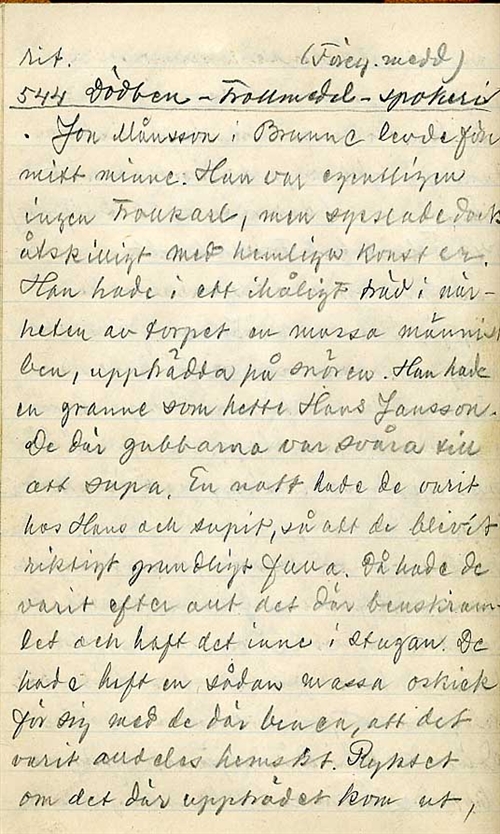 rit. (Föreg. medd)
544 Dödben - Trollmedel - spökeri
. Jon Månsson i Brunne levde före
mitt minne. Han var egentligen
ingen Trollkarl, men sysslade dock
åtskilligt med hemliga konster.
Han hade i ett ihåligt träd i när-
heten av torpet en massa människ
ben, uppträdda på snören. Han hade
en granne som hette Hans Jansson.
De där gubbarna var svåra till
att supa. En natt hade de varit
hos Hans och supit, så att de blivit
riktigt grundligt fulla. Då hade de
varit efter allt det där benskram-
let och haft det inne i stugan. De
hade haft en sådan massa oskick
för sig med de där benen, att det
varit alldeles hemskt. Ryktet
om det där uppträdet kom ut,